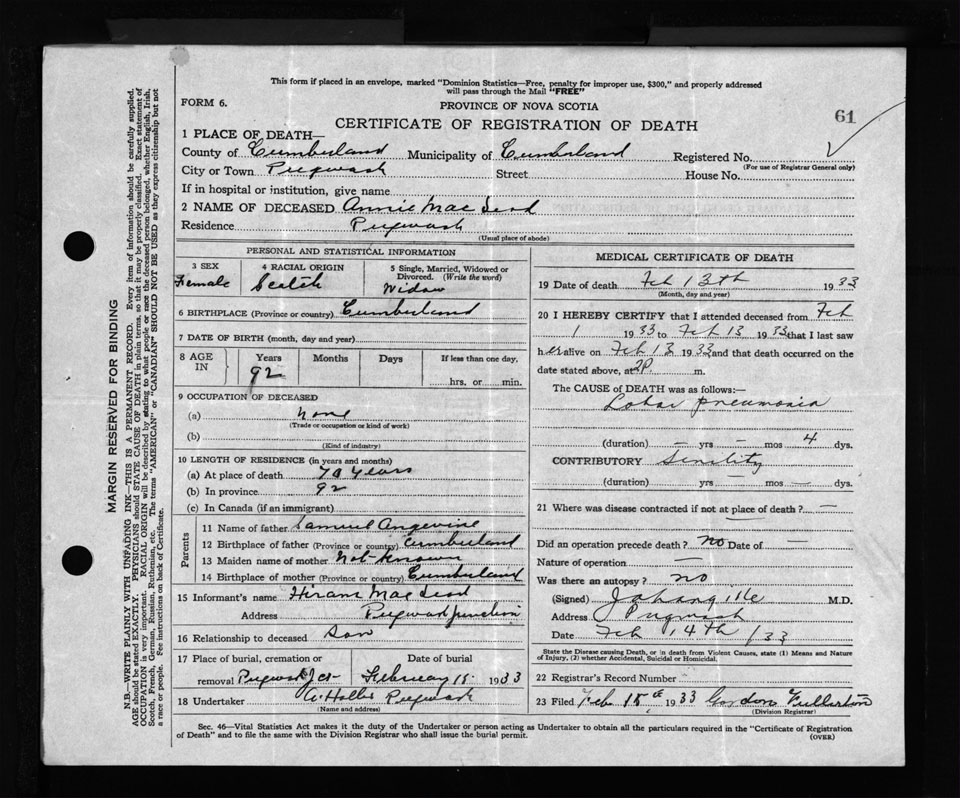 This form if placed in an envelope, marked "Dominion Statistics—Free, penalty for improper use, $300," and properly addressed
will pass through the Mail "FREE"
FORM 6.
PROVINCE OF NOVA SCOTIA
61
CERTIFICATE OF REGISTRATION OF DEATH
1 PLACE OF DEATH—
County of Cumberland Municipality of Cumberland Registered No.
(For use of Registrar General only)
City or Town Pugwash Street House No.
If in hospital or institution, give name
2 NAME OF DECEASED Annie MacLeod
Residence Pugwash
(Usual place of abode)
PERSONAL AND STATISTICAL INFORMATION
3 SEX 4 RACIAL ORIGIN 5 Single, Married, Widowed or
Divorced. (Write the word)
Female Scotch Widow
6 BIRTHPLACE (Province or country) Cumberland
7 DATE OF BIRTH (month, day and year)
8 AGE IN Years Months Days If less than one day,
92 hrs. or min.
9 OCCUPATION OF DECEASED
(a) none
(Trade or occupation or kind of work)
(b)
(Kind of industry)
10 LENGTH OF RESIDENCE (in years and months)
(a) At place of death 70 years
(b) In province 92
(c) In Canada (if an immigrant)
Parents
11 Name of father Samuel Angevine
12 Birthplace of father (Province or country) Cumberland
13 Maiden name of mother Not Known
14 Birthplace of mother (Province or country) Cumberland
15 Informant's name Hiram MacLeod
Address Pugwash Junction
16 Relationship to deceased Son
17 Place of burial, cremation or Date of burial
removal Pugwash Jct February 15 1933
18 Undertaker Hollis Pugwash
(Name and address)
MEDICAL CERTIFICATE OF DEATH
19 Date of death Feb 13th 1933
(Month, day and year)
20 I HEREBY CERTIFY that I attended deceased from Feb
1 1933 to Feb 13 1933 that I last saw
her alive on Feb 13 1933 and that death occurred on the
date stated above, at 2P. m.
The CAUSE of DEATH was as follows:—
Lobar pneumonia
(duration) — yrs — mos 4 dys.
CONTRIBUTORY Senility
(duration) yrs — mos — dys.
21 Where was disease contracted if not at place of death? —
Did an operation precede death? no Date of —
Nature of operation —
Was there an autopsy? no
(Signed) M.D.
Address Pugwash
Date Feb 14th / 33
State the Disease causing Death, or in death from Violent Causes, state (1) Means and Nature
of Injury, (2) whether Accidental, Suicidal or Homicidal.
22 Registrar's Record Number
23 Filed Feb 15th 1933 Gordon Fullerton
(Division Registrar)
Sec. 46—Vital Statistics Act makes it the duty of the Undertaker or person acting as Undertaker to obtain all the particulars required in the "Certificate of Registration
of Death" and to file the same with the Division Registrar who shall issue the burial permit.
(OVER)
MARGIN RESERVED FOR BINDING
N.B.—WRITE PLAINLY WITH UNFADING INK—THIS IS A PERMANENT RECORD. Every item of information should be carefully supplied.
AGE should be stated EXACTLY. PHYSICIANS should STATE CAUSE OF DEATH in plain terms, so that it may be properly classified. Exact statement of
OCCUPATION is very important. RACIAL ORIGIN will be described by stating to what people or race the deceased person belonged, whether English, Irish,
Scotch, French, German, Russian, Ruthenian, etc. The terms "AMERICAN" or "CANADIAN" SHOULD NOT BE USED as they express citizenship but not
a race or people. See instructions on back of Certificate.